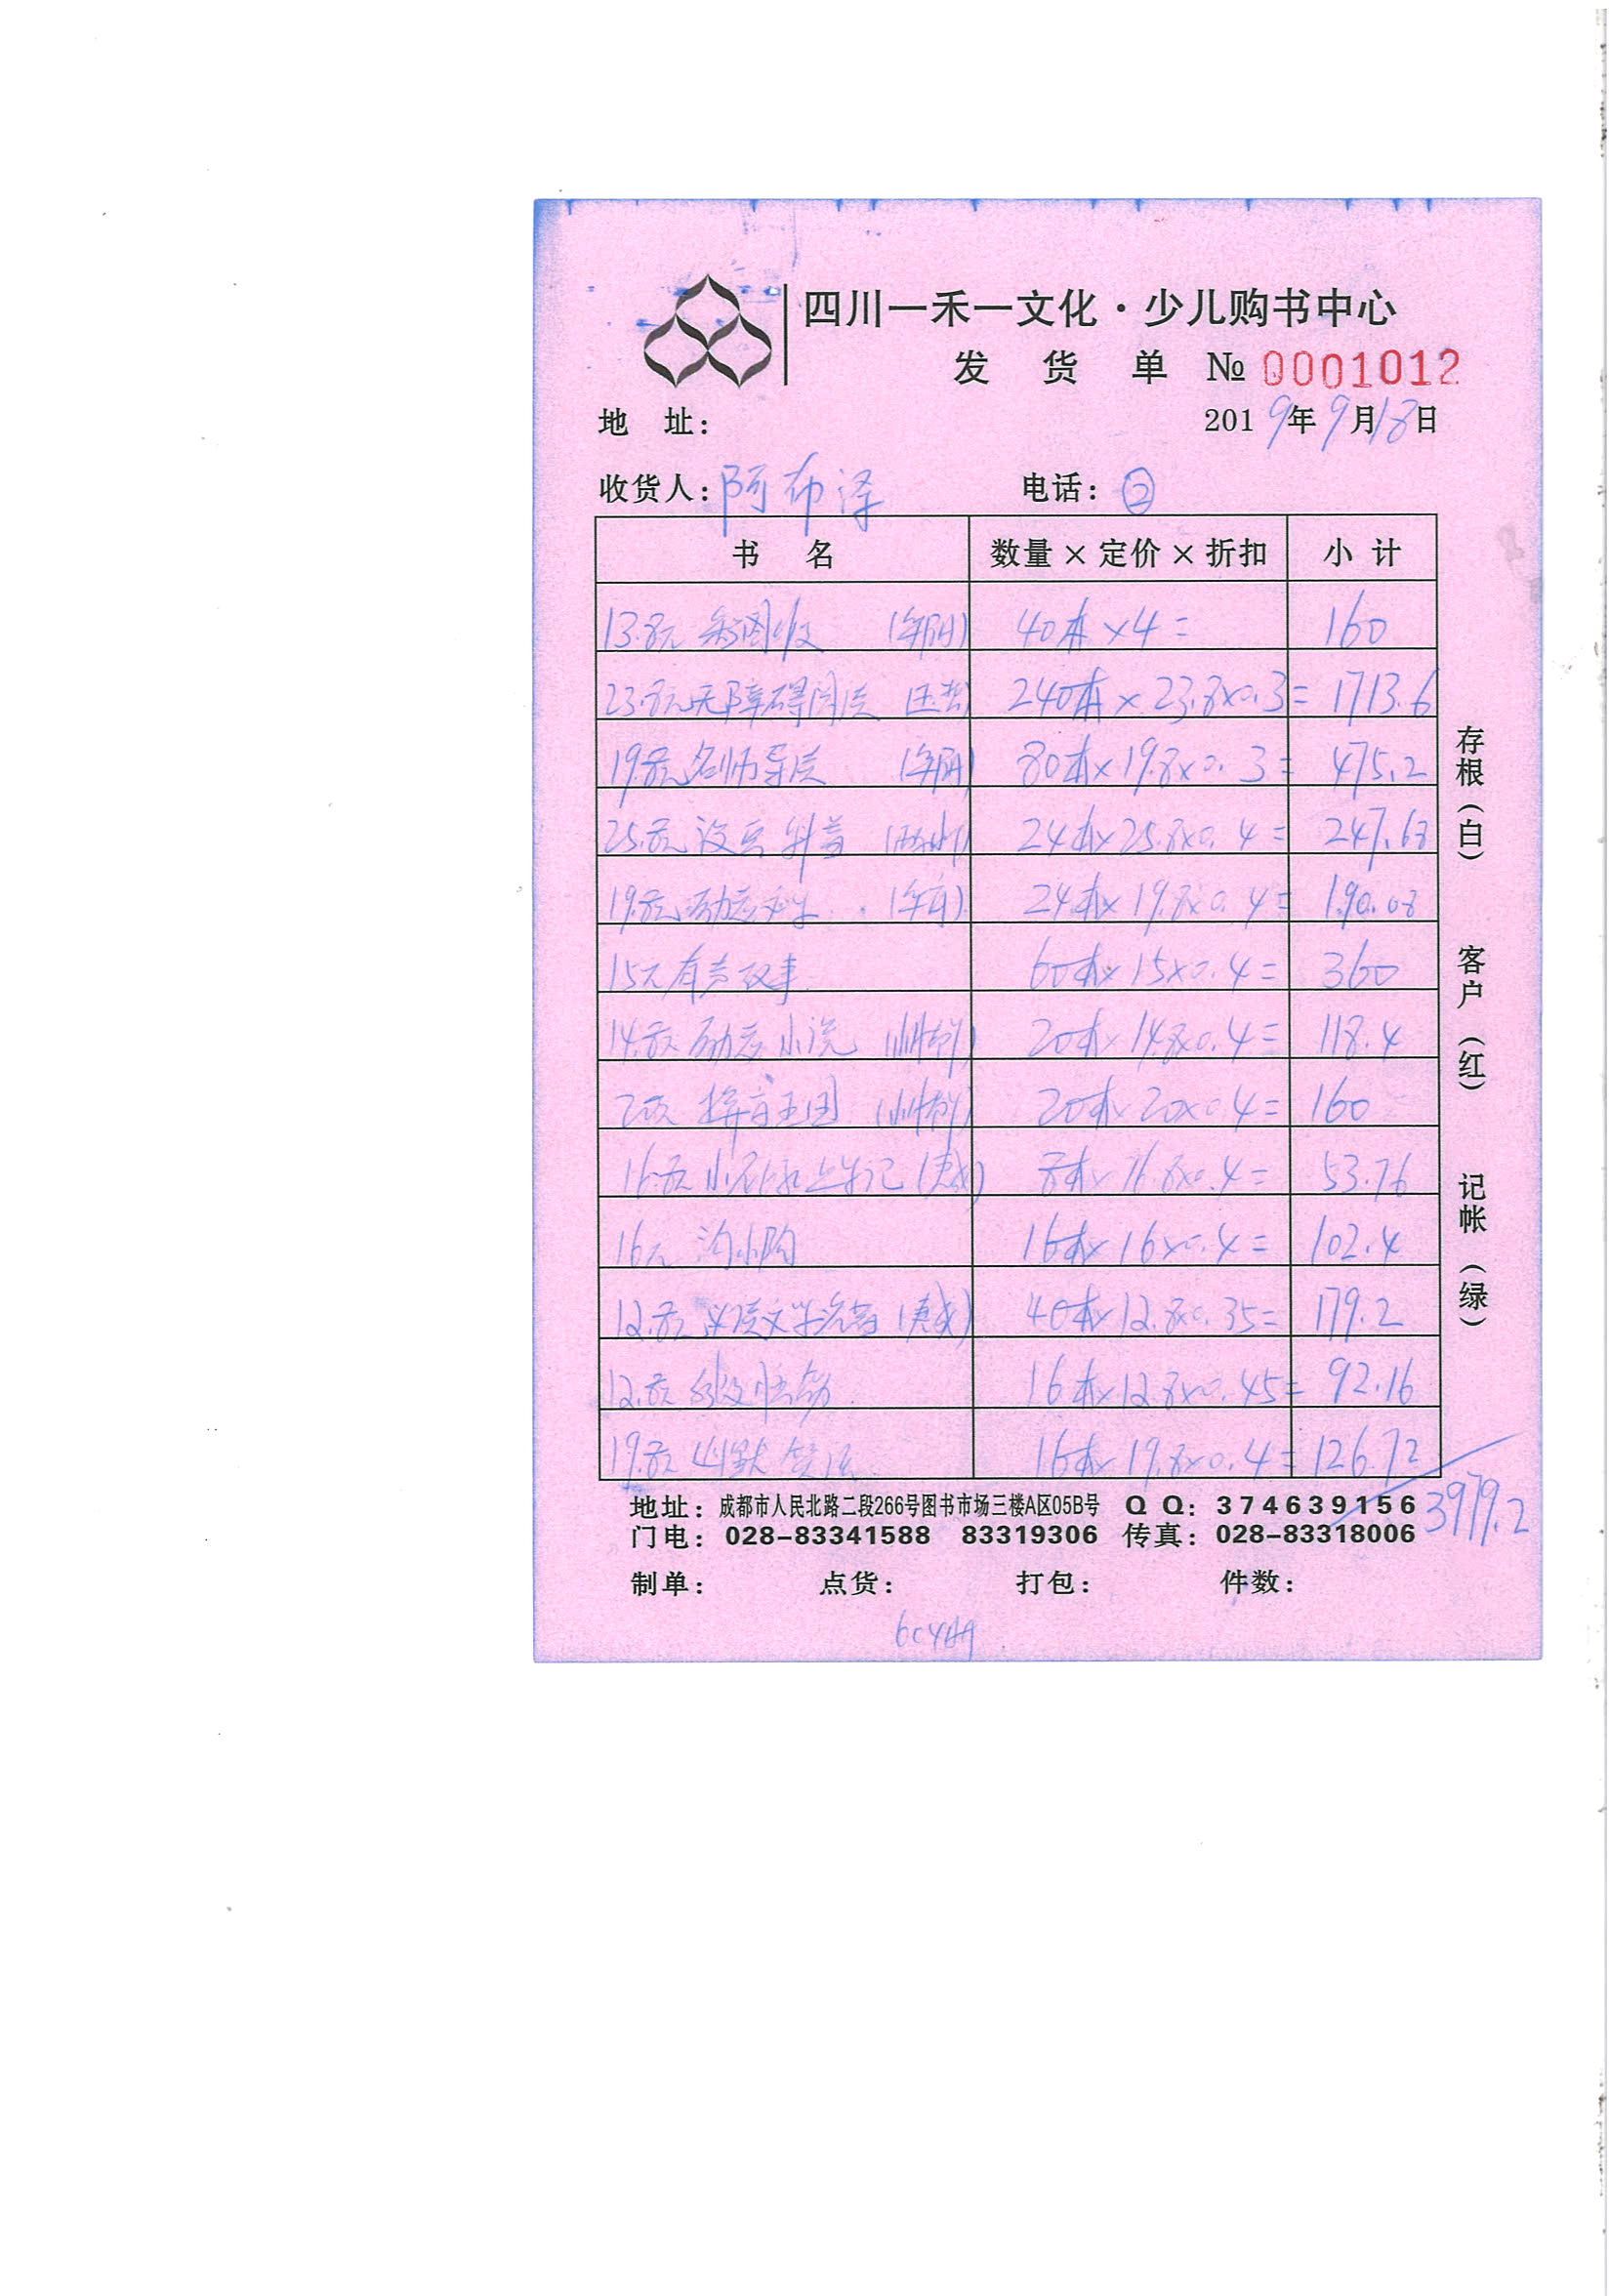 四川一禾一文化·少儿购书中心
发 货 单 № 0001012
地 址： 2019年9月18日
收货人：阿布泽 电话：②
书 名 数量×定价×折扣 小 计
13.8元 40本×4= 160
23.8元无障碍阅读 240本×23.8×0.3= 1713.6
19.8元名师导读 80本×19.8×0.3= 475.2
25.8元 科普 24本×25.8×0.4= 247.68
19.8元励志 24本×19.8×0.4= 190.08
15元有声故事 60本×15×0.4= 360
14.8元 励志小说 20本×14.8×0.4= 118.4
20元 拼音王国 20本×20×0.4= 160
16.8元 8本×16.8×0.4= 53.76
16元 16本×16×0.4= 102.4
12.8元 40本×12.8×0.35= 179.2
12.8元 16本×12.8×0.45= 92.16
19.8元 幽默 16本×19.8×0.4= 126.72
3979.2
存根（白） 客户（红） 记帐（绿）
地址：成都市人民北路二段266号图书市场三楼A区05B号 Q Q：374639156
门电：028-83341588 83319306 传真：028-83318006
制单： 点货： 打包： 件数：